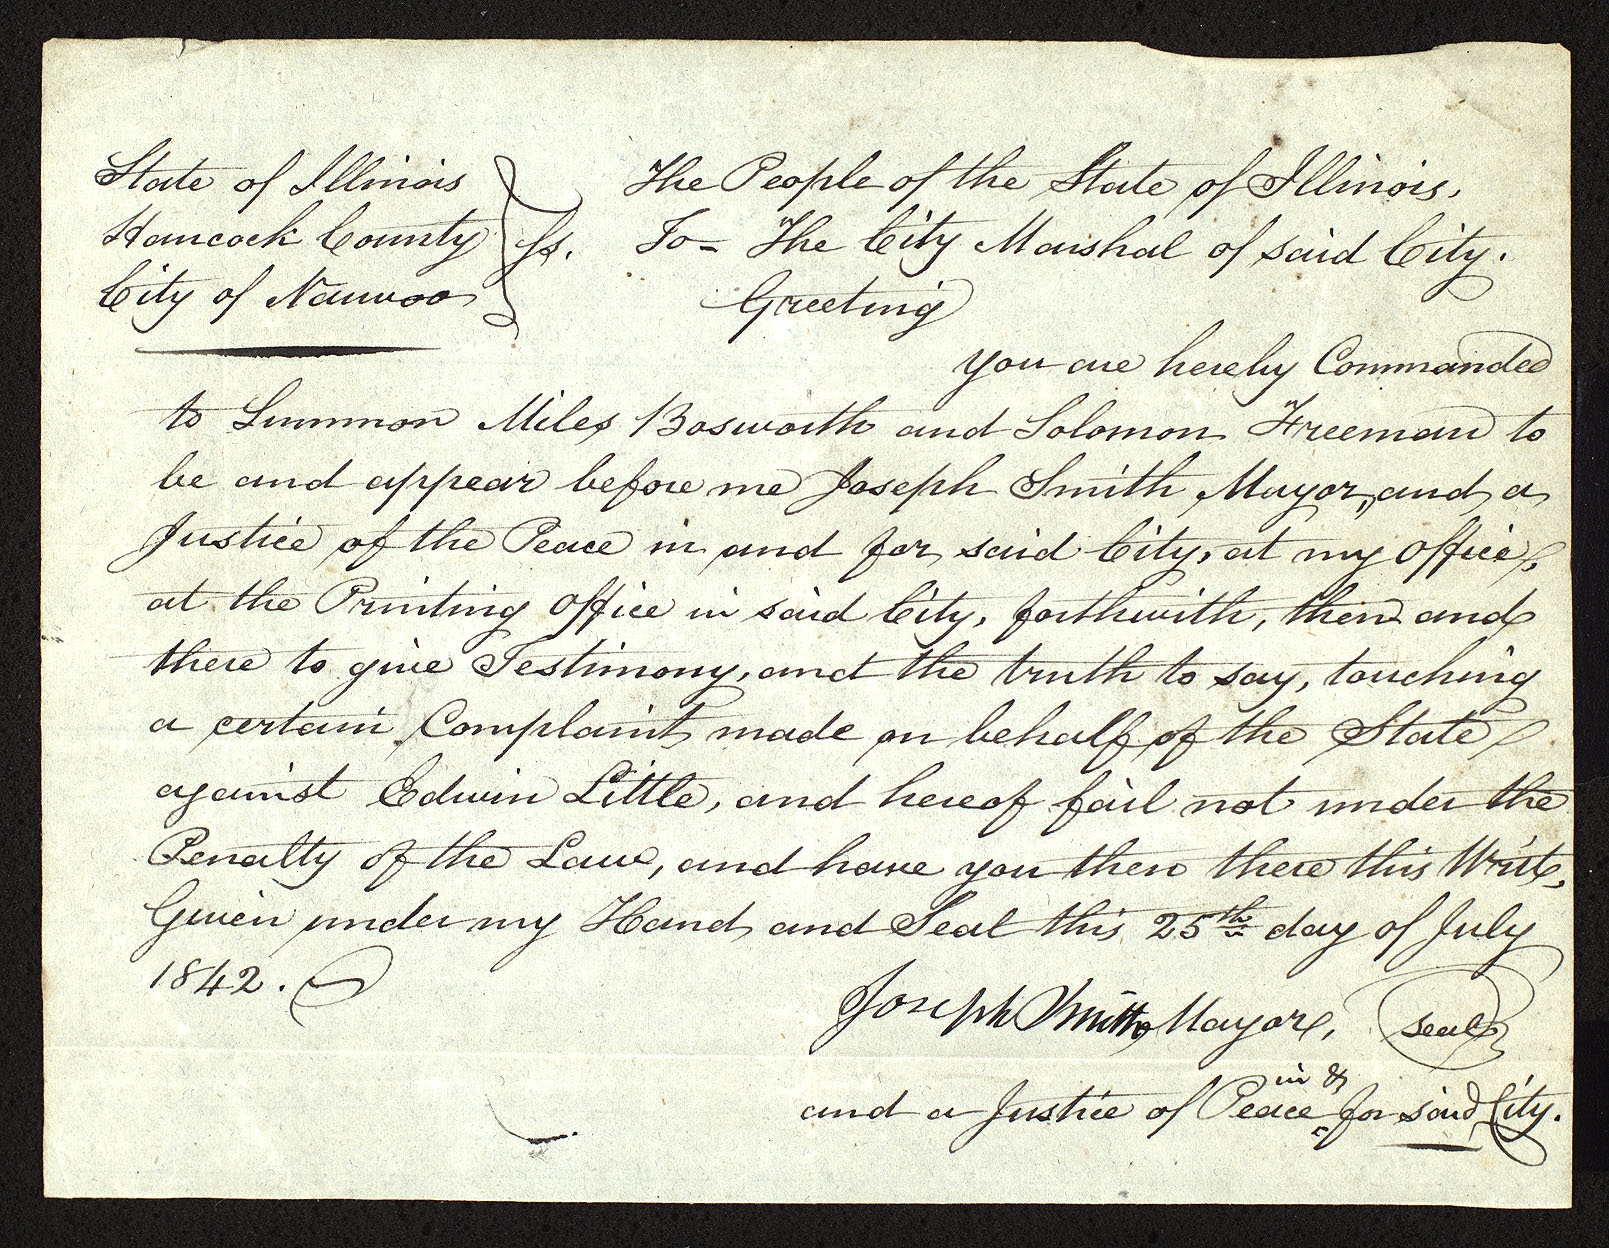 State of Illinois } The People of the State of Illinois,
Hancock County } ss. To = The City Marshal of said City.
City of Nauvoo } Greeting
you are hereby Commanded
to Summon Miles Bosworth and Solomon Freeman to
be and appear before me Joseph Smith, Mayor, and a
Justice of the Peace in and for said City, at my office,
at the Printing Office in said City, forthwith, then and
there to give Testimony, and the truth to say, touching
a certain Complaint made on behalf of the State
against Edwin Little, and hereof fail not under the
Penalty of the Law, and have you then there this Writ,
Given under my Hand and Seal this 25th day of July
1842.
Joseph Smith Mayor, seal
and a Justice of Peace in & for said City.